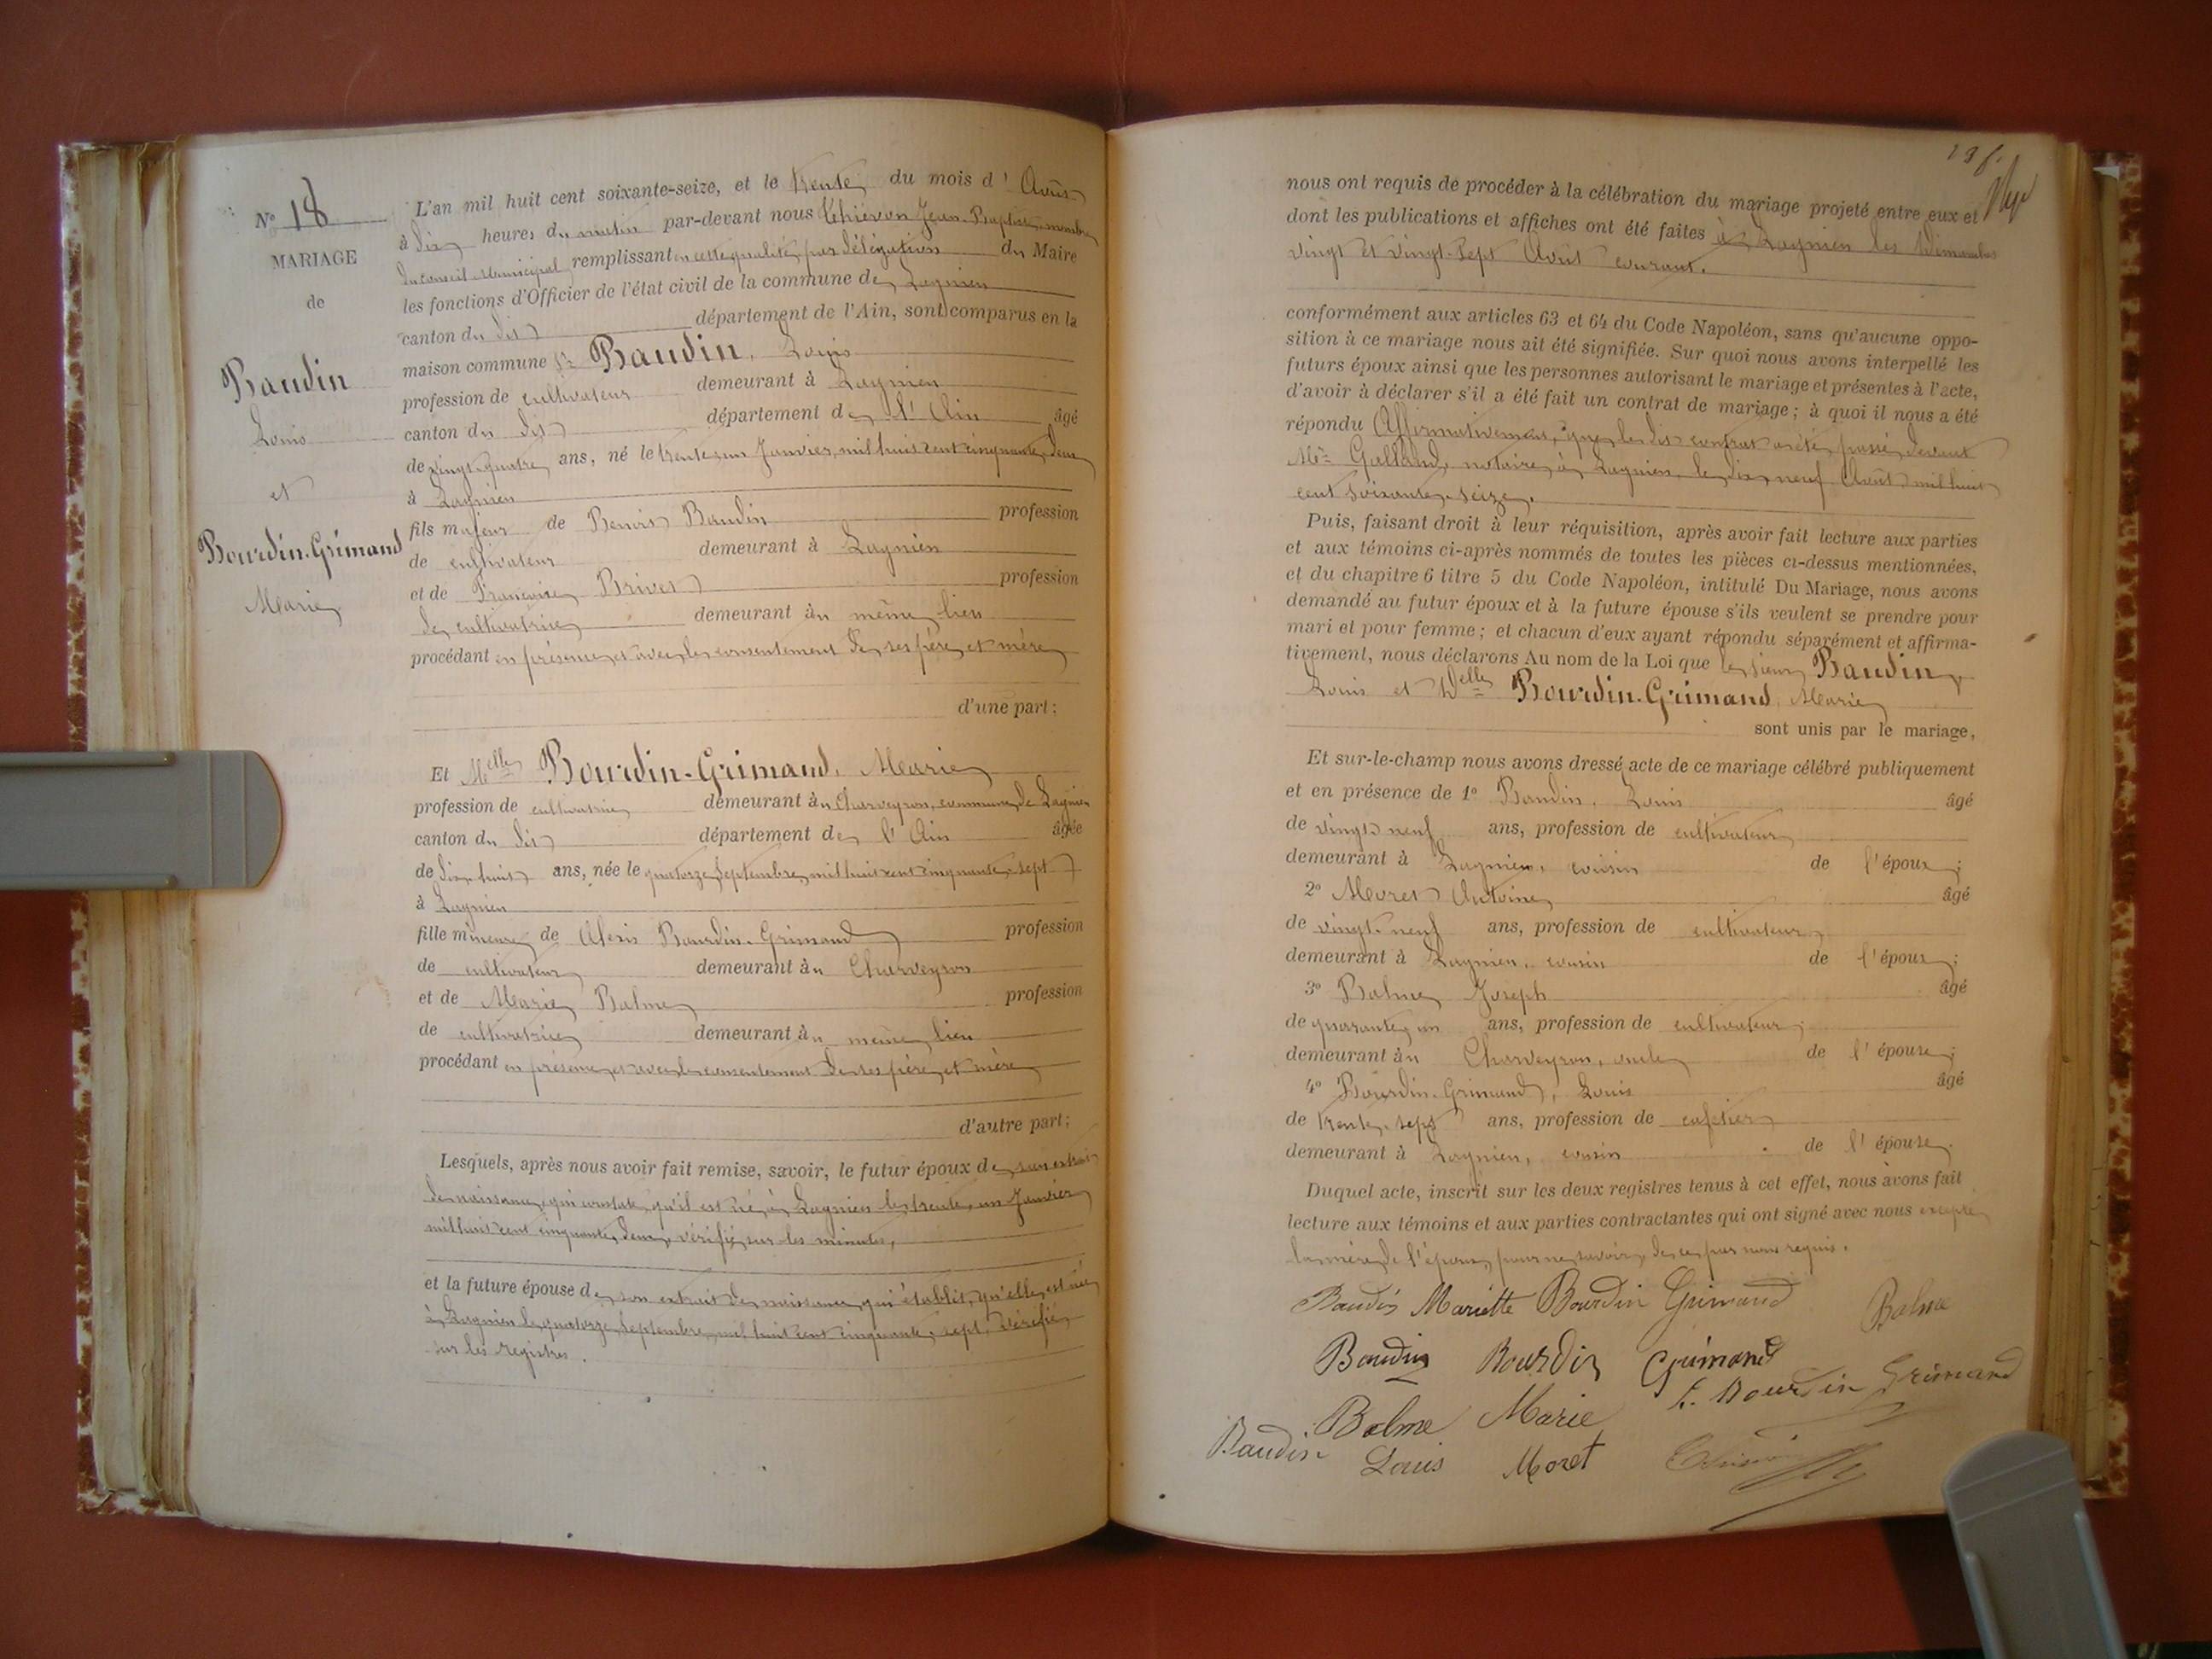 N° 18
MARIAGE
de
Baudin
Louis
et
Bourdin-Grimand
Marie
L'an mil huit cent soixante-seize, et le trente du mois d'Août
à dix heures du matin par-devant nous Thiévon Jean-Baptiste, membre
du conseil Municipal remplissant en cette qualité, par délégation du Maire
les fonctions d'Officier de l'état civil de la commune de Lagnieu
canton du dit département de l'Ain, sont comparus en la
maison commune Sr Baudin, Louis
profession de cultivateur demeurant à Lagnieu
canton du dit département de l'Ain âgé
de vingt-quatre ans, né le trente-un Janvier, mil huit cent cinquante-deux
à Lagnieu
fils majeur de Benoit Baudin profession
de cultivateur demeurant à Lagnieu
et de Françoise Brivet profession
de cultivatrice demeurant au même lieu
procédant en présence et avec le consentement de ses père et mère
d'une part;
Et Melle Bourdin-Grimand, Marie
profession de cultivatrice demeurant à Charveyron, commune de Lagnieu
canton du dit département de l'Ain âgée
de dix-huit ans, née le quatorze Septembre, mil huit cent cinquante-sept
à Lagnieu
fille mineure de Alexis Bourdin-Grimand profession
de cultivateur demeurant à Charveyron
et de Marie Balme profession
de cultivatrice demeurant au même lieu
procédant en présence et avec le consentement de ses père et mère
d'autre part;
Lesquels, après nous avoir fait remise, savoir, le futur époux de son extrait
de naissance, qui constate qu'il est né, à Lagnieu le trente-un Janvier
mil huit cent cinquante-deux, vérifié sur les minutes,
et la future épouse de son extrait de naissance, qui établit, qu'elle est née
à Lagnieu le quatorze Septembre mil huit cent cinquante-sept, vérifié
sur les registres.
nous ont requis de procéder à la célébration du mariage projeté entre eux et
dont les publications et affiches ont été faites à Lagnieu les Dimanches
vingt et vingt-sept Août courant.
conformément aux articles 63 et 64 du Code Napoléon, sans qu'aucune oppo-
sition à ce mariage nous ait été signifiée. Sur quoi nous avons interpellé les
futurs époux ainsi que les personnes autorisant le mariage et présentes à l'acte,
d'avoir à déclarer s'il a été fait un contrat de mariage; à quoi il nous a été
répondu Affirmativement, que le dit contrat a été passé devant
Me Galland, notaire, à Lagnieu, le dix-neuf Août mil huit
cent soixante-seize.
Puis, faisant droit à leur réquisition, après avoir fait lecture aux parties
et aux témoins ci-après nommés de toutes les pièces ci-dessus mentionnées,
et du chapitre 6 titre 5 du Code Napoléon, intitulé Du Mariage, nous avons
demandé au futur époux et à la future épouse s'ils veulent se prendre pour
mari et pour femme; et chacun d'eux ayant répondu séparément et affirma-
tivement, nous déclarons Au nom de la Loi que le Sieur Baudin
Louis et Delle Bourdin-Grimand, Marie
sont unis par le mariage,
Et sur-le-champ nous avons dressé acte de ce mariage célébré publiquement
et en présence de 1° Baudin, Louis âgé
de vingt-neuf ans, profession de cultivateur
demeurant à Lagnieu, cousin de l'époux;
2° Moret Antoine âgé
de vingt-neuf ans, profession de cultivateur
demeurant à Lagnieu, cousin de l'époux;
3° Balme Joseph âgé
de quarante-un ans, profession de cultivateur
demeurant à Charveyron, oncle de l'épouse;
4° Bourdin-Grimand, Louis âgé
de trente-sept ans, profession de cafetier
demeurant à Lagnieu, cousin de l'épouse.
Duquel acte, inscrit sur les deux registres tenus à cet effet, nous avons fait
lecture aux témoins et aux parties contractantes qui ont signé avec nous excepté
la mère de l'époux, pour ne savoir, de ce par nous requis.
Baudin Mariette Bourdin Grimand Balme
Baudin Bourdin Grimand
L. Bourdin Grimand
Balme Marie
Baudin Louis Moret